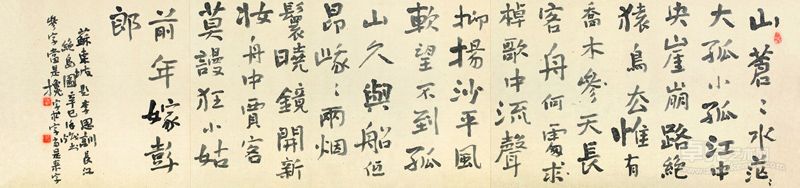 山蒼〻水茫〻
大孤小孤江中
央崖崩路絕
猿鳥去惟有
喬木參天長
客舟何處求
棹歌中流聲
抑揚沙平風
軟望不到孤
山久與船低
昂峩〻兩烟
鬟曉鏡開新
妝舟中賈客
莫謾狂小姑
前年嫁彭
郎
蘇東坡題李思訓長江
絕島圖辛巳
參字當是攙字求字當是來字